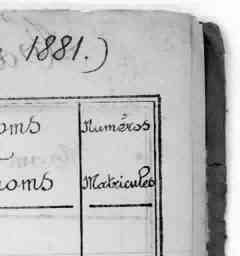 1881.)
oms Numéros
noms Matricules